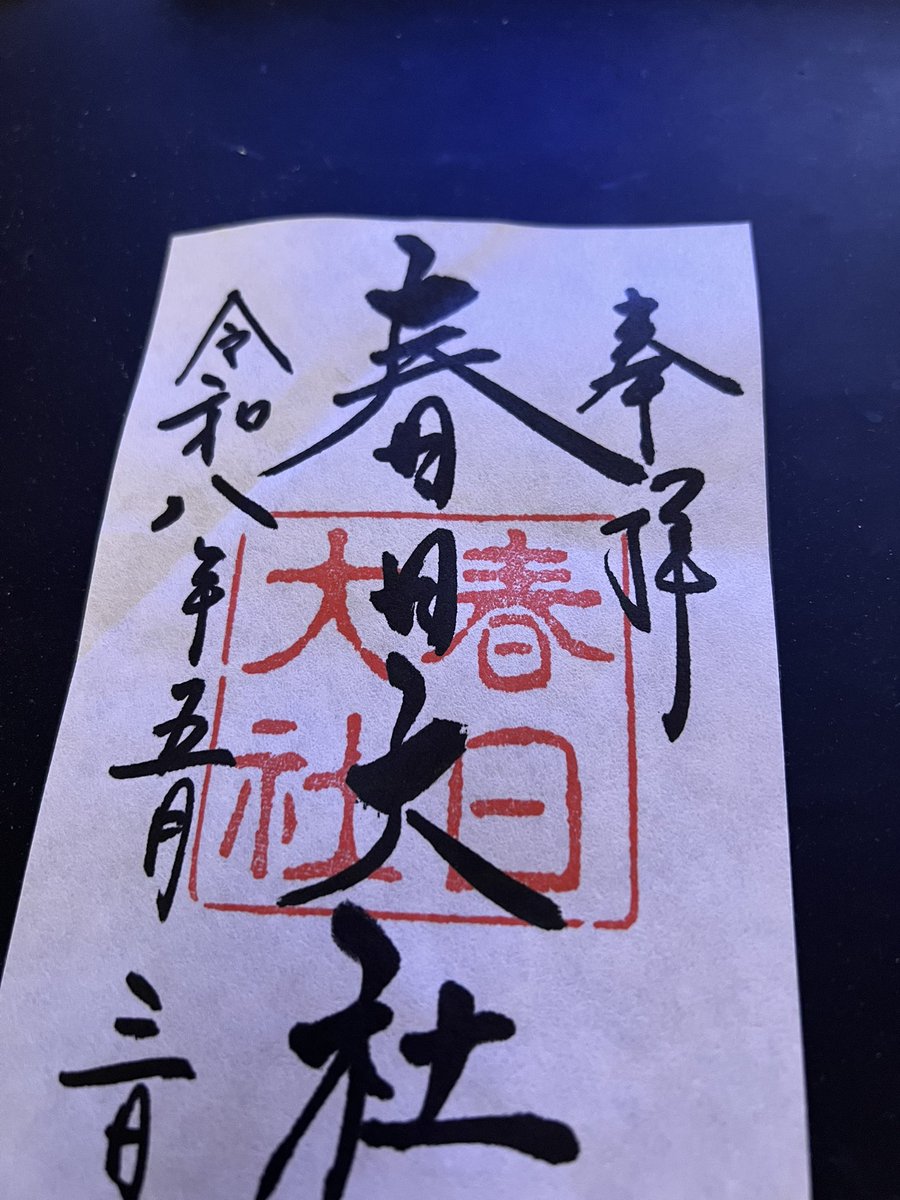 奉拝
春日大社
春日
大社
令和八年五月三日